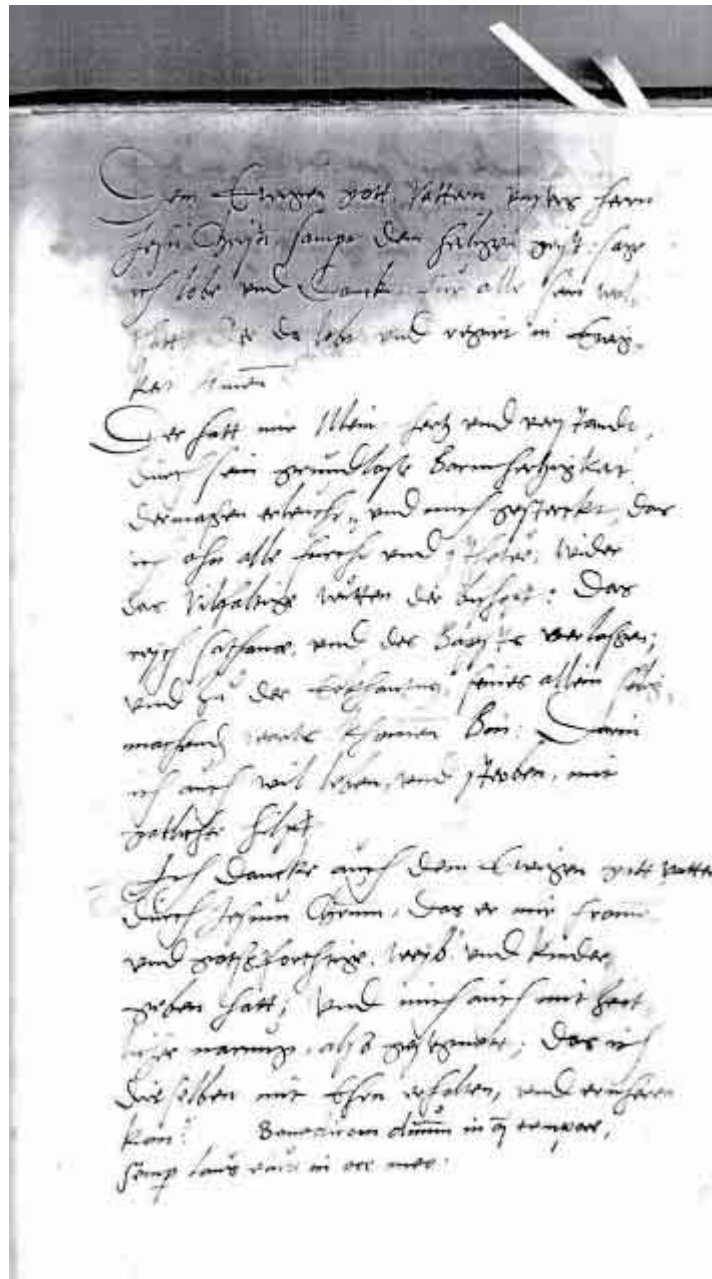 Dem Ewigen gott Vattern unsers hern
Jhesu Christi sampt dem heiligen geist sage
ich lobe und Danck fur alle sein wol
der do lebt und regirt in Ewig-
keit Amen
Der hatt mir Mein hertz und verstandt,
durch sein grundlose Barmhertzigkait
dermassen erleucht, und mich gesterckt, das
ich ohn alle furcht und wider
das vilfaltige wutten der Das
reych Sathans, und des Bapsts verlassen;
und zu der Erkhantnus seines allein selig
machend worts khomen Bin: Darin
ich auch wil leben, und sterben, mit
gotlicher hilff
Ich Dancke auch dem Ewigen gott vatter
durch Jesum Christum, das er mir frome
und gotsforchtige weyb und kinder
geben hatt; und mich auch mit zeit-
licher narung, also gesegnett; Das ich
dieselben mit Ehrn erhalten, und erneren
kan: Benedicam dnum in oi tempore,
semp laus eius in ore meo: